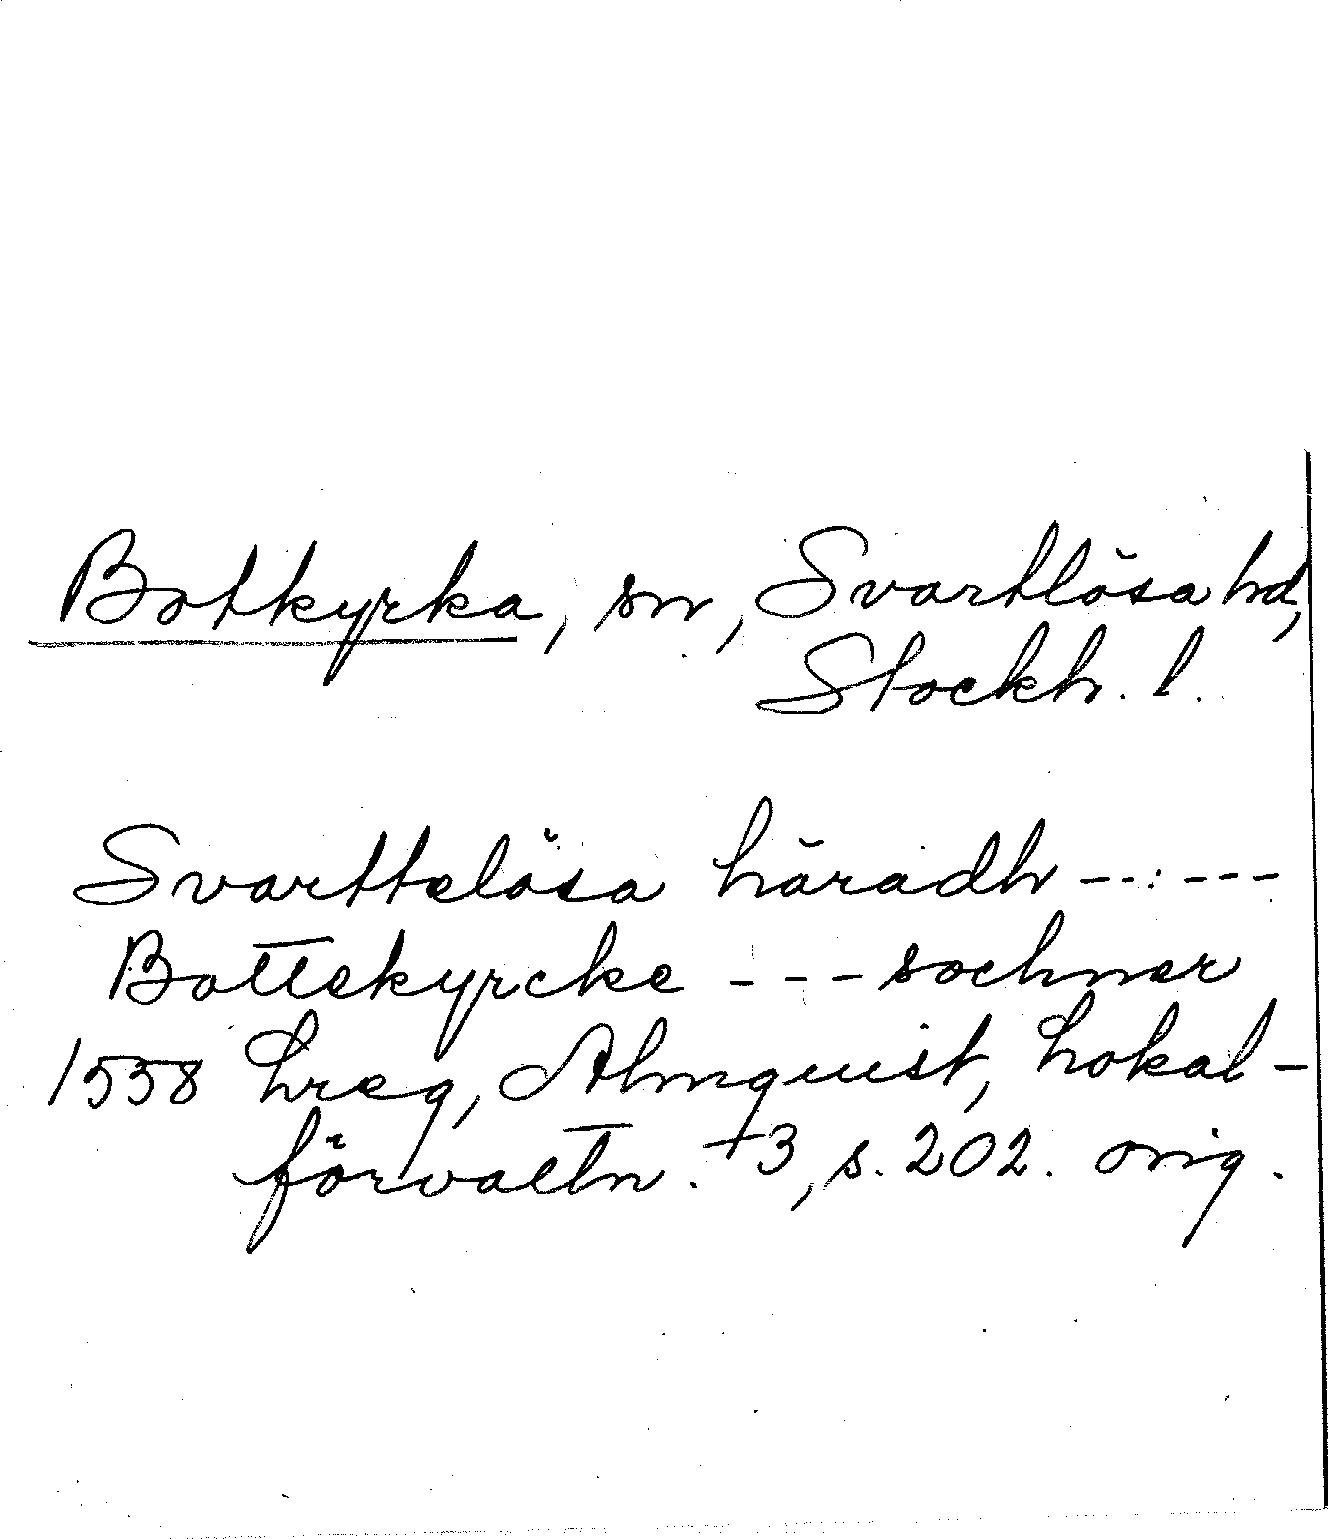 Botkyrka, sn, Svartlösa hd,
Stockh. l.
Svarttelösa häradh ------
Bottekyrcke --- sochner
1558 hreg, Almquist, Lokal-
förvaltn. +3, s. 202. orig.